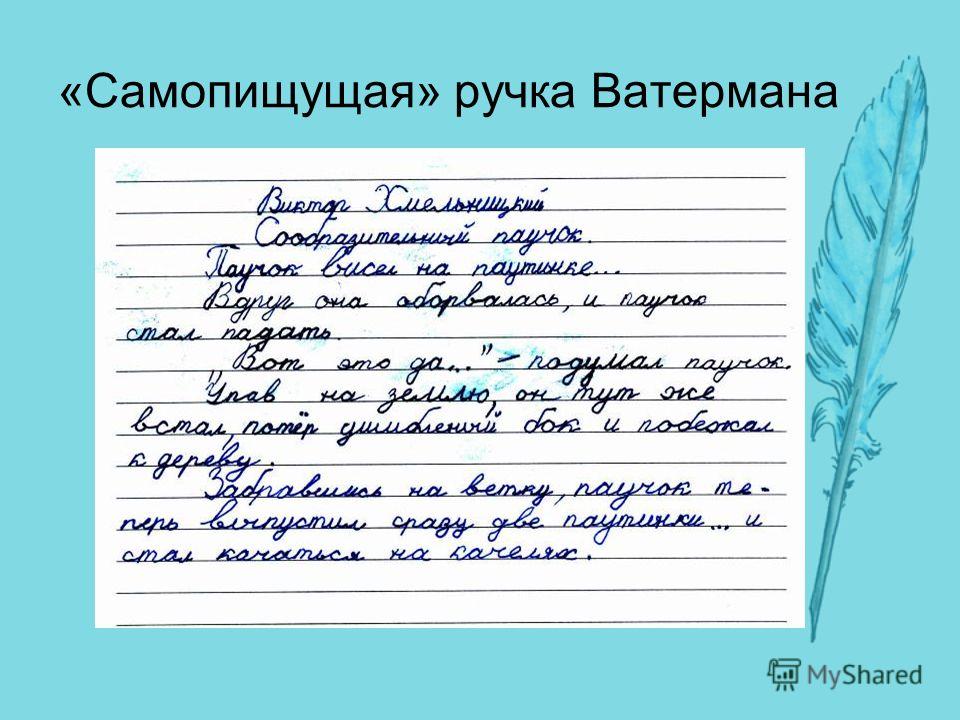 «Самопищущая» ручка Ватермана
Виктор Хмельницкий
Сообразительный паучок.
Паучок висел на паутинке...
Вдруг она оборвалась, и паучок
стал падать.
„Вот это да..." – подумал паучок.
Упав на землю, он тут же
встал, потёр ушибленый бок и побежал
к дереву.
Забравшись на ветку, паучок те-
перь выпустил сразу две паутинки... и
стал качаться на качелях.
MyShared